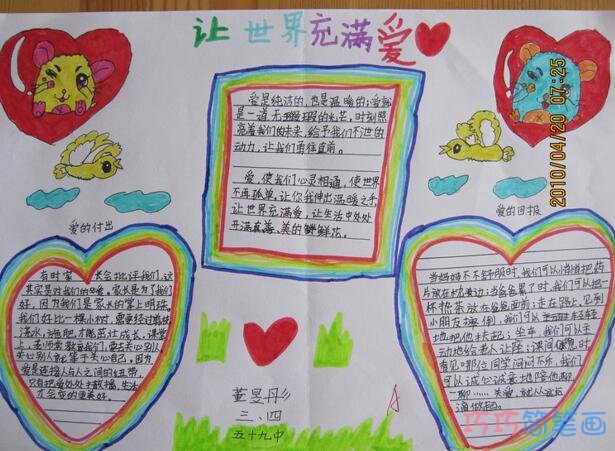 让世界充满爱
2010/04/20 07:25
爱是纯洁的,也是温暖的;爱就
是一道无瑕的光芒,时刻照
亮着我们的未来,给予我们不泄的
动力,让我们勇往直前。
爱,使我们心灵相通,使世界
不再孤单。让你我伸出温暖之手,
让世界充满爱,让生活中处处
开满真善、美的鲜花。
爱的付出
有时家长会批评我们,这
其实是对我们的爱。家长是为了我们
好,因为我们是家长的掌上明珠。
我们好比一棵小树,需要经过
浇水,施肥,才能茁壮成长。课堂
上,老师常教育我们,要去关心别人。
关心别人就等于关心自己,因为
爱是连接人与人之间的纽带,
只有把爱处处去散播,生活
才会变的更美好。
爱的回报
当妈妈不舒服时,我们可以悄悄把药
片放在水旁边;当爸爸累了时,我们可以把一
杯热茶放在爸爸面前;走在路上,见到
小朋友摔倒,我们可以轻轻
地把他扶起;坐车,我们可以主
动地给老人让座;课间休息时,
看见哪位同学闷闷不乐,我们
可以诚心诚意地陪他聊
一聊……关爱,就从这些
董昱彤
三、四
五十九中
巧巧简笔画